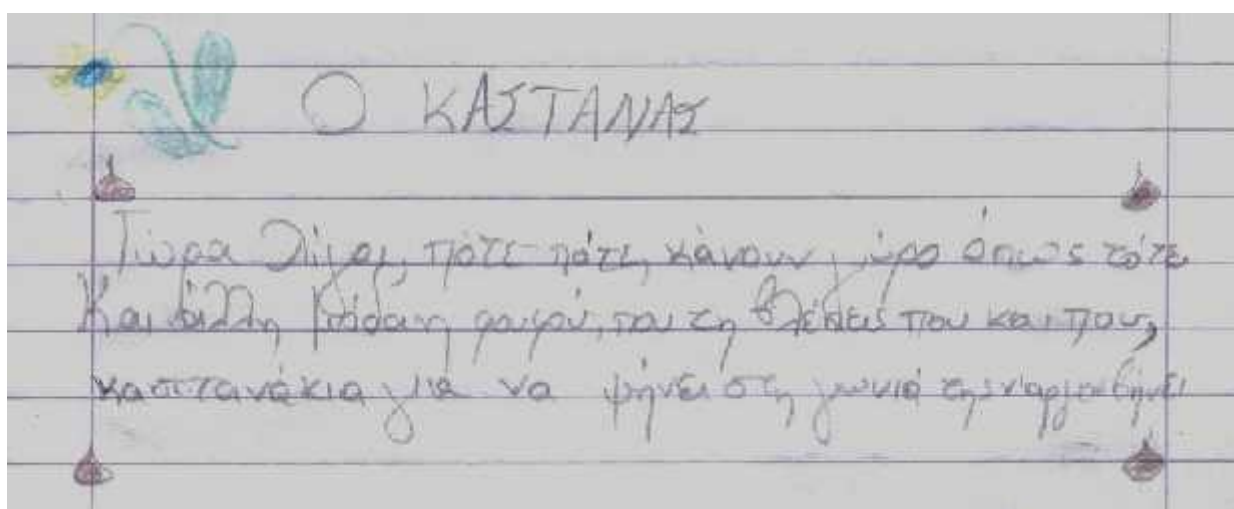 Ο ΚΑΣΤΑΝΑΣ
Τώρα λίγοι, πότε πότε, κάνουν γύρο όπως τότε
Και άλλη μόδα, που τη βλέπεις που και που,
καστανάκια για να ψήνει στη γωνιά της ν'αργοσβήνει